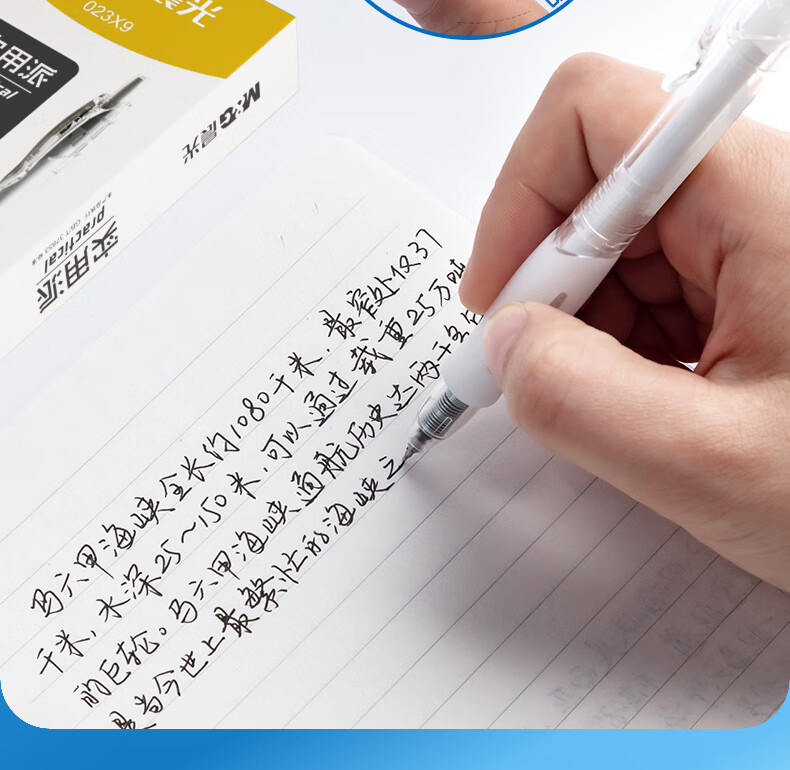 晨光
023X9
实用派
practical
M&G晨光
实用派
practical
马六甲海峡全长约1080千米,最窄处仅37
千米,水深25~150米,可以通过载重25万吨
的巨轮。马六甲海峡通航历史达两千多年
是当今世上最繁忙的海峡之